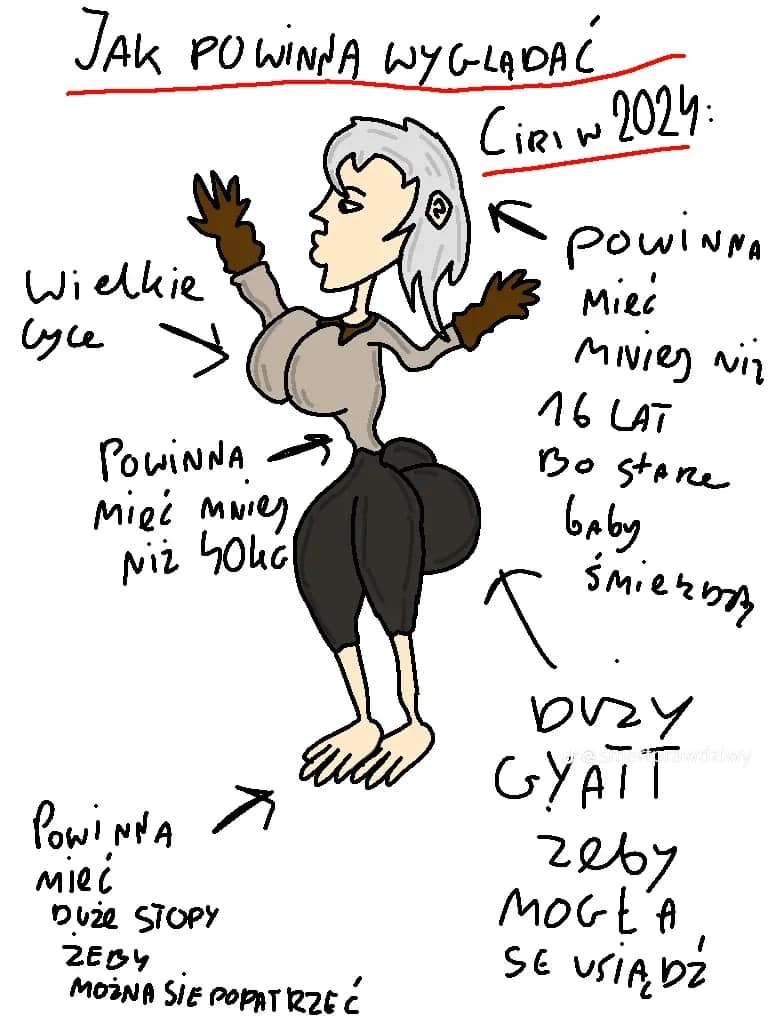 JAK POWINNA WYGLĄDAĆ
CIRI W 2024:
POWINNA
MIEĆ
MNIEJ NIŻ
16 LAT
BO STARE
baby
śMIERDZĄ
Wielkie
cyce
POWINNA
MIĘĆ MNIEJ
NIŻ 40KG
DUZY
GYATT
żeby
MOGŁA
SE USIĄDŹ
POWINNA
MIEĆ
DUŻE STOPY
ŻEBY
MOŻNA SIE POPATRZEĆ